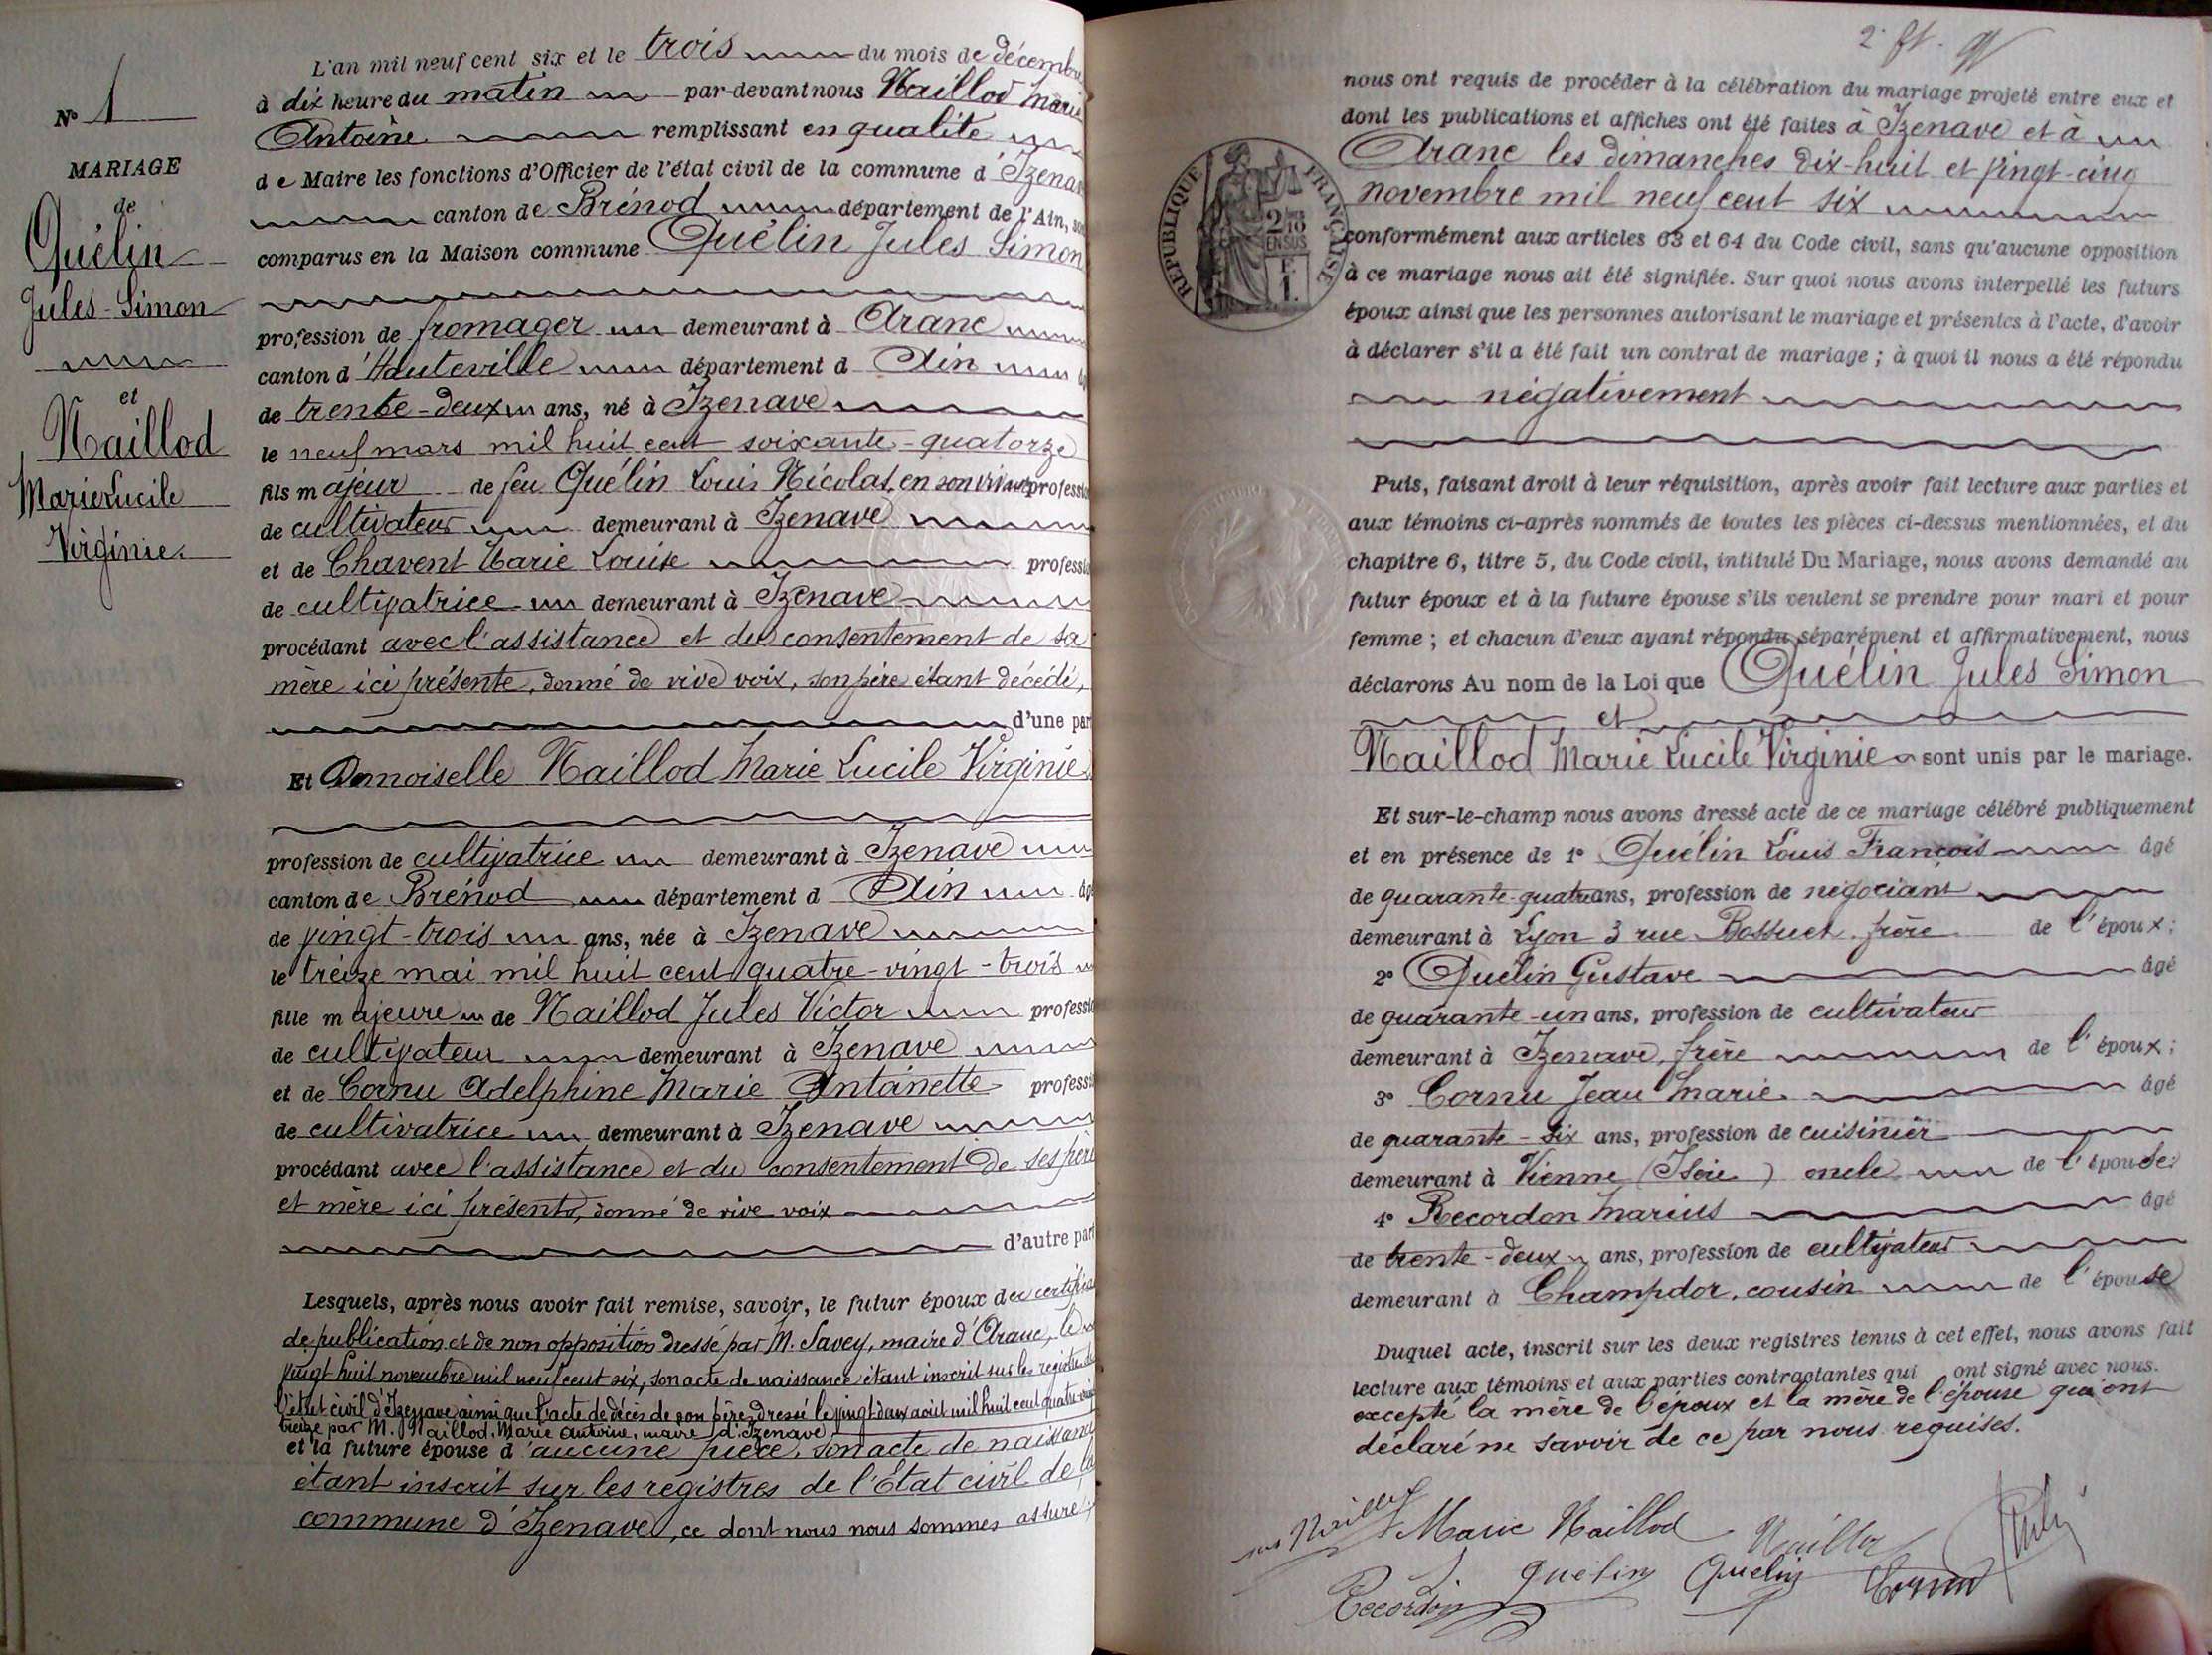 N° 1
MARIAGE
de
Quélin
Jules-Simon
et
Naillod
Marie Lucile
Virginie.
L'an mil neuf cent six et le trois du mois de décembre
à dix heure du matin par-devant nous Naillod Marie
Antoine remplissant en qualité
de Maire les fonctions d'Officier de l'état civil de la commune d'Izenave
canton de Brénod département de l'Ain, sont
comparus en la Maison commune Quélin Jules Simon
profession de fromager demeurant à Aranc
canton d'Hauteville département d Ain
de trente-deux ans, né à Izenave
le neuf mars mil huit cent soixante-quatorze
fils majeur de feu Quélin Louis Nicolas, en son vivant profession
de cultivateur demeurant à Izenave
et de Chavent Marie Louise profession
de cultivatrice demeurant à Izenave
procédant avec l'assistance et du consentement de sa
mère ici présente, donné de vive voix, son père étant décédé,
d'une part
Et Demoiselle Naillod Marie Lucile Virginie
profession de cultivatrice demeurant à Izenave
canton de Brénod département d Ain âgé
de vingt-trois ans, née à Izenave
le treize mai mil huit cent quatre-vingt-trois
fille majeure de Naillod Jules Victor profession
de cultivateur demeurant à Izenave
et de Cornu Adelphine Marie Antoinette profession
de cultivatrice demeurant à Izenave
procédant avec l'assistance et du consentement de ses père
et mère ici présents, donné de vive voix
d'autre part
Lesquels, après nous avoir fait remise, savoir, le futur époux du certificat
de publication et de non opposition dressé par M. Savey, maire d'Aranc, le
vingt huit novembre mil neuf cent six, son acte de naissance étant inscrit sur les registres de
l'état civil d'Izenave ainsi que l'acte de décès de son père dressé le vingt deux août mil huit cent quatre-vingt
treize par M. Naillod, Marie Antoine, maire d'Izenave
et la future épouse d'aucune pièce, son acte de naissance
étant inscrit sur les registres de l'État civil de la
commune d'Izenave, ce dont nous nous sommes assuré,
nous ont requis de procéder à la célébration du mariage projeté entre eux et
dont les publications et affiches ont été faites à Izenave et à
Aranc les dimanches dix-huit et vingt-cinq
novembre mil neuf cent six
RÉPUBLIQUE FRANÇAISE
2/10
EN SUS
F.
1.
conformément aux articles 63 et 64 du Code civil, sans qu'aucune opposition
à ce mariage nous ait été signifiée. Sur quoi nous avons interpellé les futurs
époux ainsi que les personnes autorisant le mariage et présentes à l'acte, d'avoir
à déclarer s'il a été fait un contrat de mariage ; à quoi il nous a été répondu
négativement
Puis, faisant droit à leur réquisition, après avoir fait lecture aux parties et
aux témoins ci-après nommés de toutes les pièces ci-dessus mentionnées, et du
chapitre 6, titre 5, du Code civil, intitulé Du Mariage, nous avons demandé au
futur époux et à la future épouse s'ils veulent se prendre pour mari et pour
femme ; et chacun d'eux ayant répondu séparément et affirmativement, nous
déclarons Au nom de la Loi que Quélin Jules Simon
et
Naillod Marie Lucile Virginie sont unis par le mariage.
Et sur-le-champ nous avons dressé acte de ce mariage célébré publiquement
et en présence de 1° Quélin Louis François âgé
de quarante-quatre ans, profession de négociant
demeurant à Lyon 3 rue Bossuet frère de l'époux ;
2° Quélin Gustave âgé
de quarante-un ans, profession de cultivateur
demeurant à Izenave, frère de l'époux ;
3° Cornu Jean Marie âgé
de quarante-six ans, profession de cuisinier
demeurant à Vienne (Isère) oncle de l'épouse
4° Recordon Marius âgé
de trente-deux ans, profession de cultivateur
demeurant à Champdor, cousin de l'épouse
Duquel acte, inscrit sur les deux registres tenus à cet effet, nous avons fait
lecture aux témoins et aux parties contractantes qui ont signé avec nous.
excepté la mère de l'époux et la mère de l'épouse qui ont
déclaré ne savoir de ce par nous requises.
Marie Naillod Naillod
Recordon Quélin Quelin Cornu